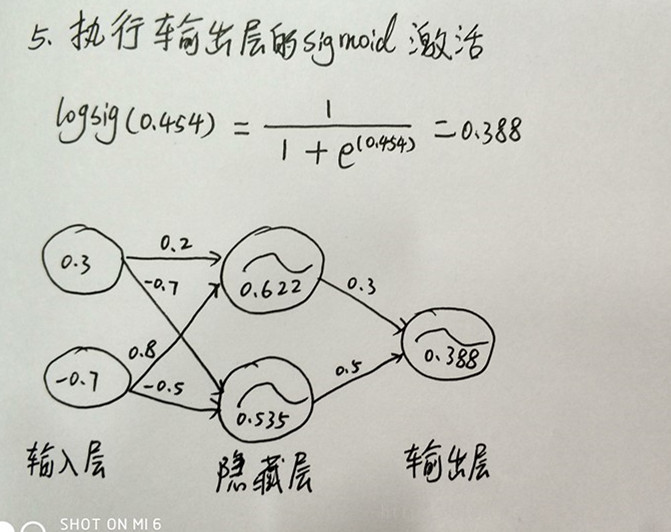 5. 执行输出层的sigmoid激活
logsig(0.454) = 1 / 1 + e^(0.454) = 0.388
0.3
0.2
-0.7
0.622
0.3
0.8
0.388
-0.7
-0.5
0.5
0.535
输入层
隐藏层
输出层
SHOT ON MI 6